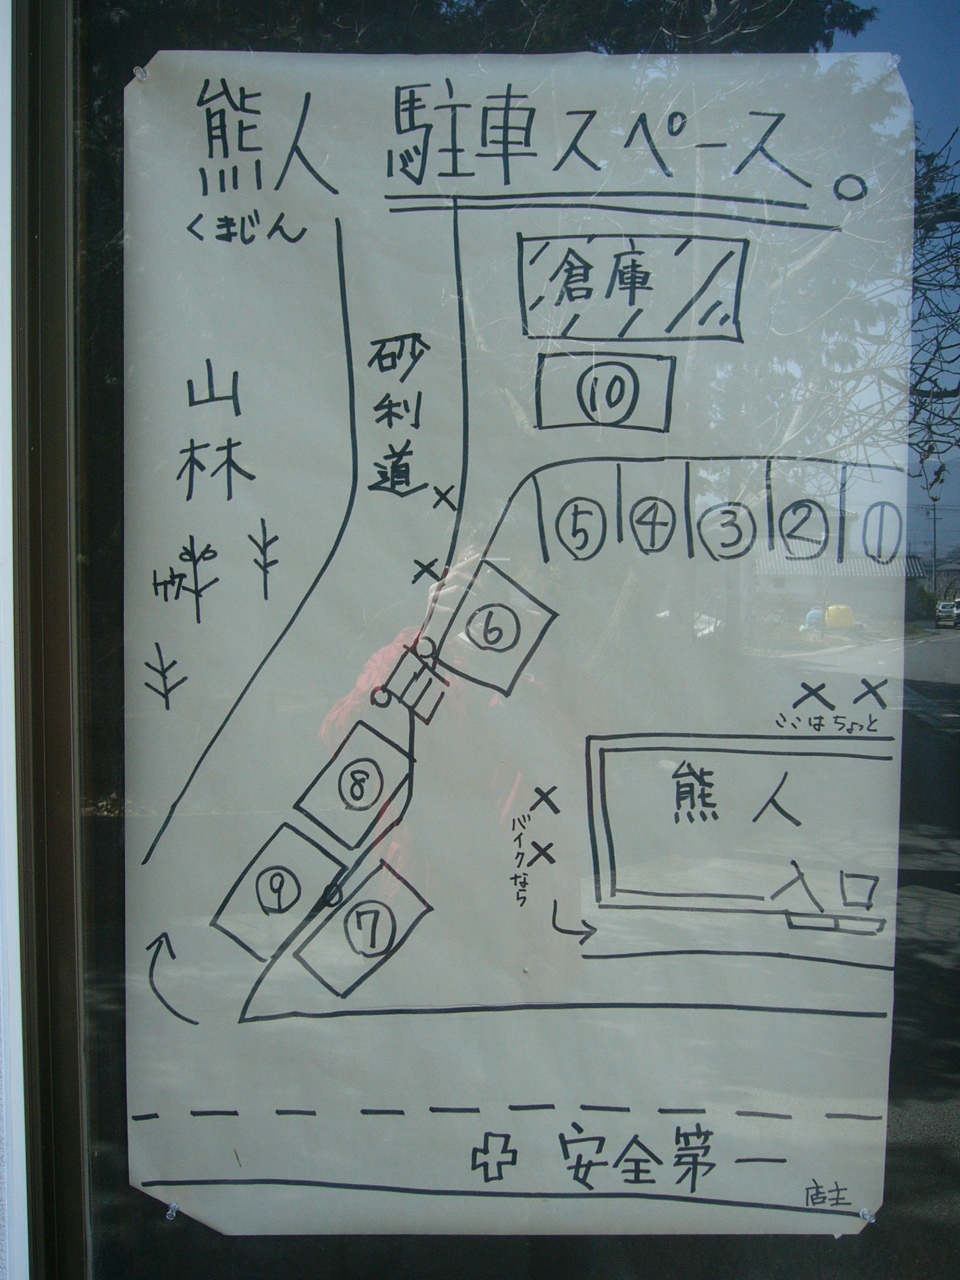 熊人 駐車スペース。
くまじん
倉庫
砂利道
⑩
山林
⑤ ④ ③ ② ①
×
×
⑥
× ×
ここはちょっと
⑧
熊人
×
×
バイクなら
⑨
⑦
入口
安全第一
店主